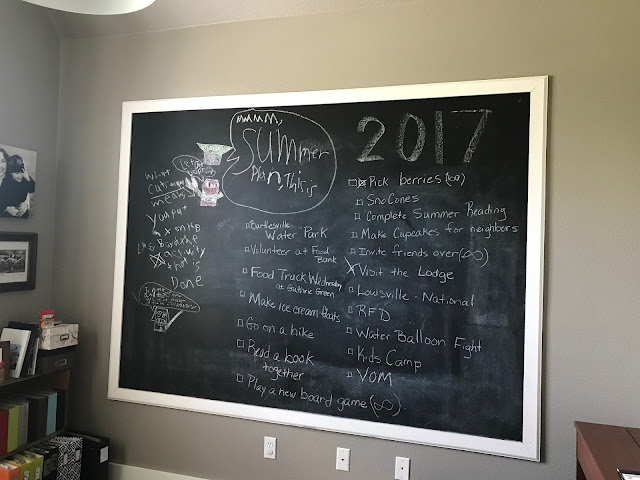 MMMM,
SUMmer
PlAN, This is
2017
What
means
x on the
Done
Bartlesville
Water Park
Volunteer at Food
Bank
Food Truck Wednesday
at Guthrie Green
Make ice cream floats
Go on a hike
Read a book
together
Play a new board game (∞)
Pick berries (∞)
Sno Cones
Complete Summer Reading
Make Cupcakes for neighbors
Invite friends over (∞)
Visit the Lodge
Lowisville - National
RFD
Water Balloon Fight
Kids Camp
VOM